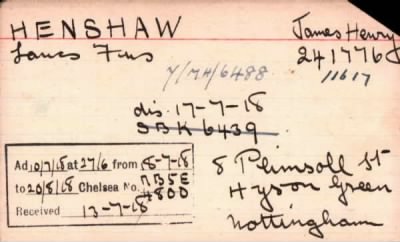 HENSHAW James Henry
Lancs Fus 241776
Y/MH/6488 11617
dis. 17-7-18
SBK 6439
Ad 10/7/18 at 27/6 from 18-7-18
to 20/8/18 Chelsea No. 4800
Received 13-7-18
8 Plimsoll St
Hyson Green
Nottingham